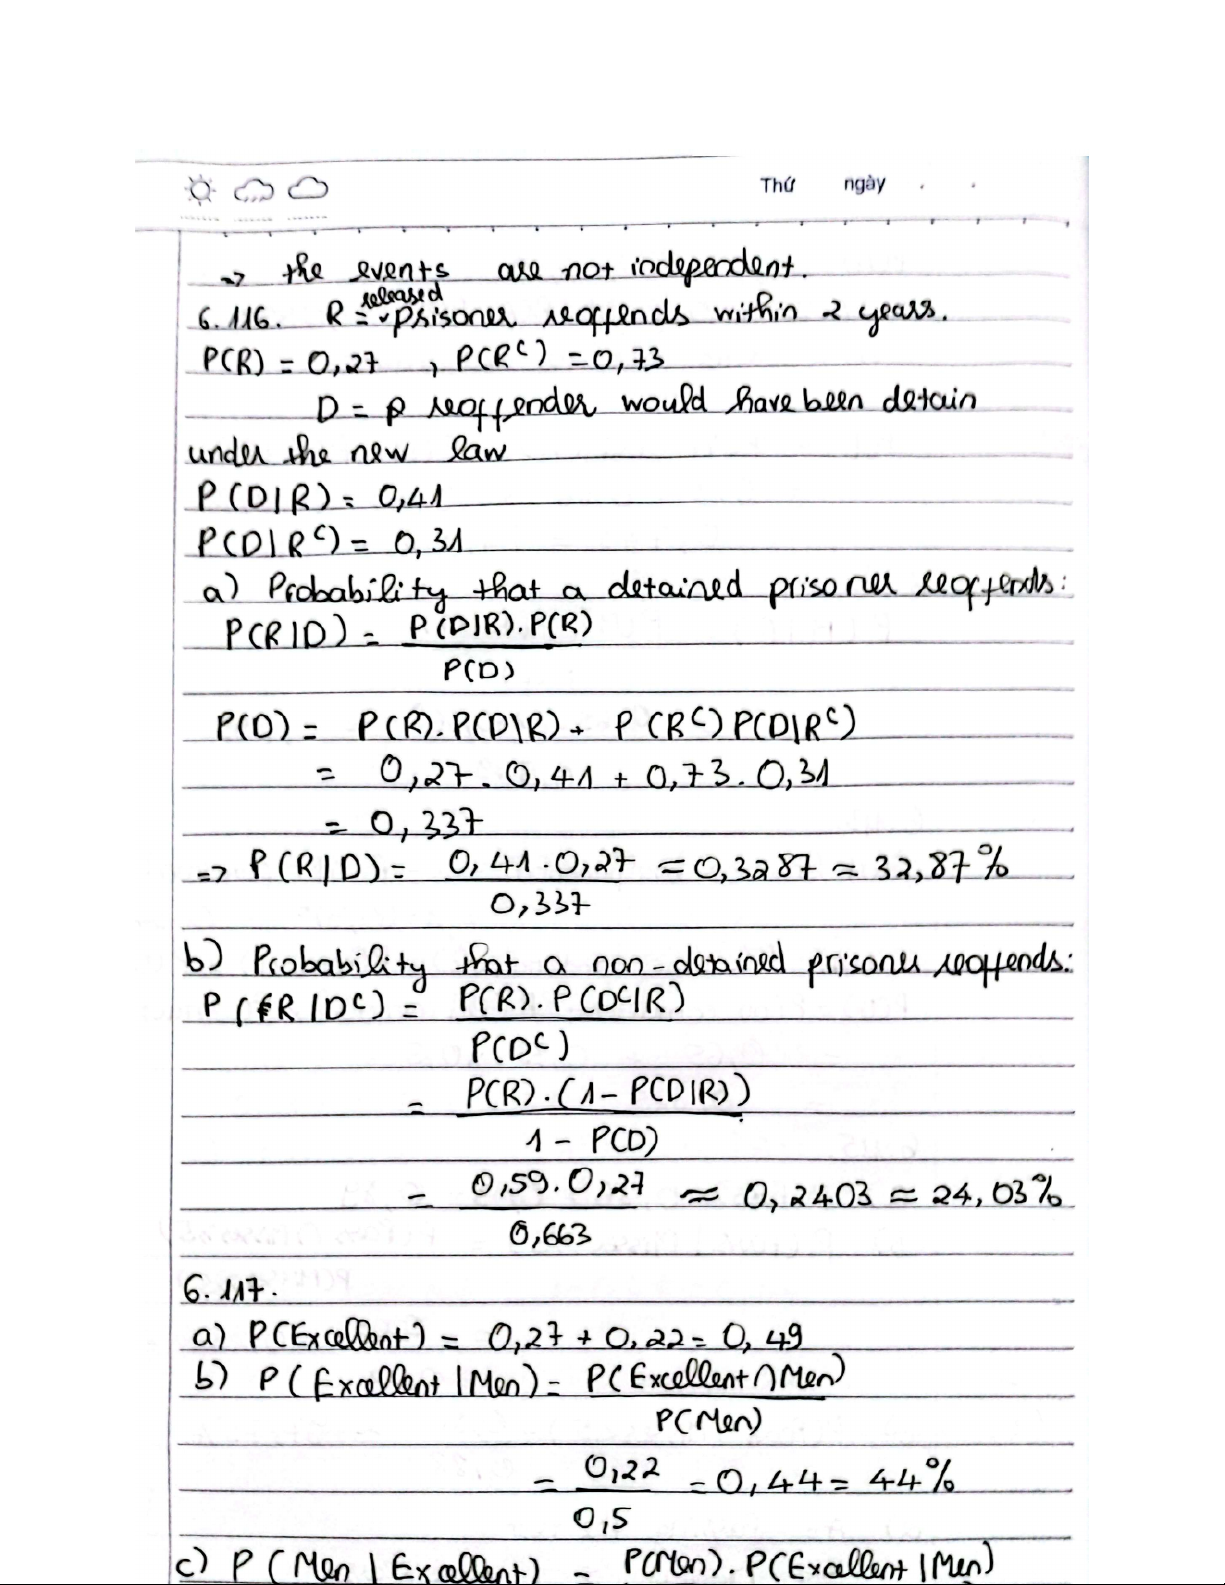 Thứ ngày . .
=> the events are not independent.
released
6.116. R = prisoner reoffends within 2 years.
P(R) = 0,27 , P(R^C) = 0,73
D = reoffender would have been detain
under the new law
P(D|R) = 0,41
P(D|R^C) = 0,31
a) Probability that a detained prisoner reoffends:
P(R|D) = P(D|R).P(R)
P(D)
P(D) = P(R).P(D|R) + P(R^C)P(D|R^C)
= 0,27. 0,41 + 0,73. 0,31
= 0,337
=> P(R|D) = 0,41.0,27 = 0,3287 = 32,87%
0,337
b) Probability that a non-detained prisoner reoffends:
P(R|D^C) = P(R).P(D^C|R)
P(D^C)
= P(R).(1-P(D|R))
1 - P(D)
= 0,59.0,27 ≈ 0,2403 ≈ 24,03%
0,663
6.117.
a) P(Excellent) = 0,27 + 0,22 = 0,49
b) P(Excellent|Men) = P(Excellent∩Men)
P(Men)
= 0,22 = 0,44 = 44%
0,5
c) P(Men|Excellent) = P(Men).P(Excellent|Men)